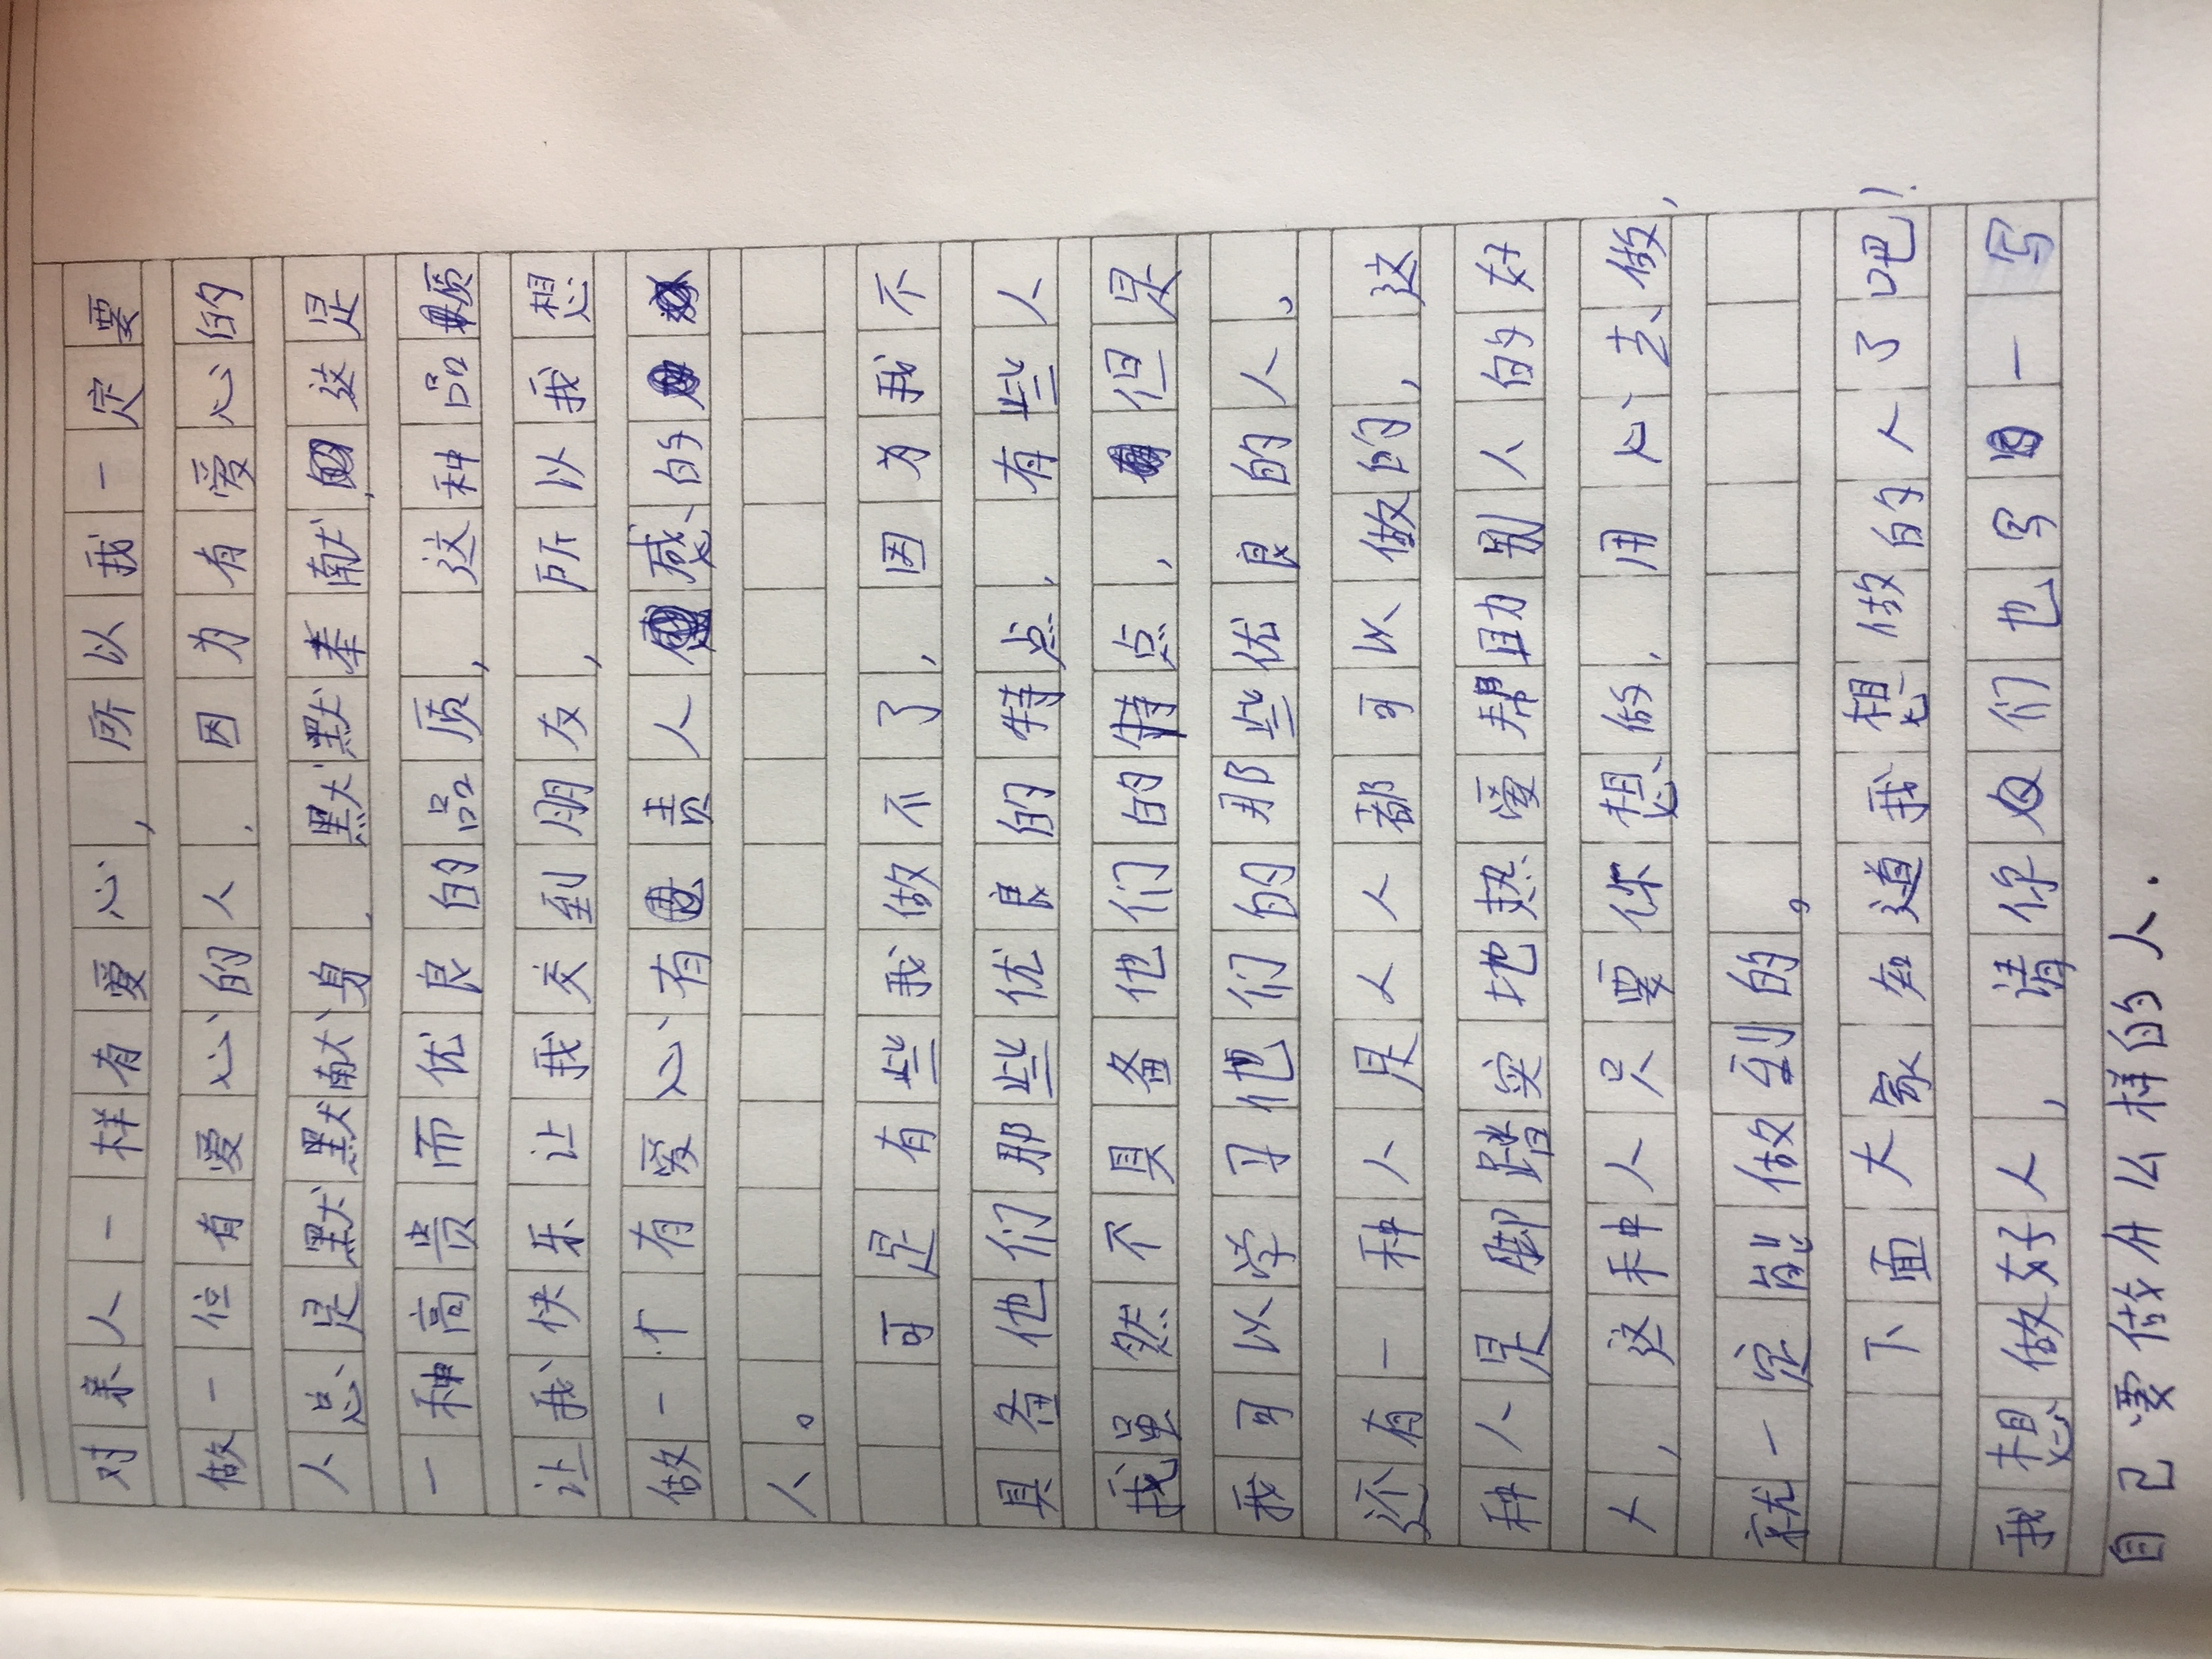 对亲人一样有爱心,所以我一定要
做一位有爱心的人.因为有爱心的
人总是默默献身.默默奉献,这是
一种高贵而优良的品质,这种品质
让我快乐让我交到朋友,所以我想
做一个有爱心有责人感的
人。
可是有些我做不了,因为我不
具备他们那些优良的特点,有些人
我虽然不具备他们的特点,但是
我可以学习他们的那些优良的人。
还有一种人是人人都可以做的,这
种人是脚踏实地热爱帮助别人的好
人,这种人只要你想做,用心去做,
就一定能做到的。
下面大家知道我想做的人了吧!
我想做好人,请你们也写一写
自己要做什么样的人.